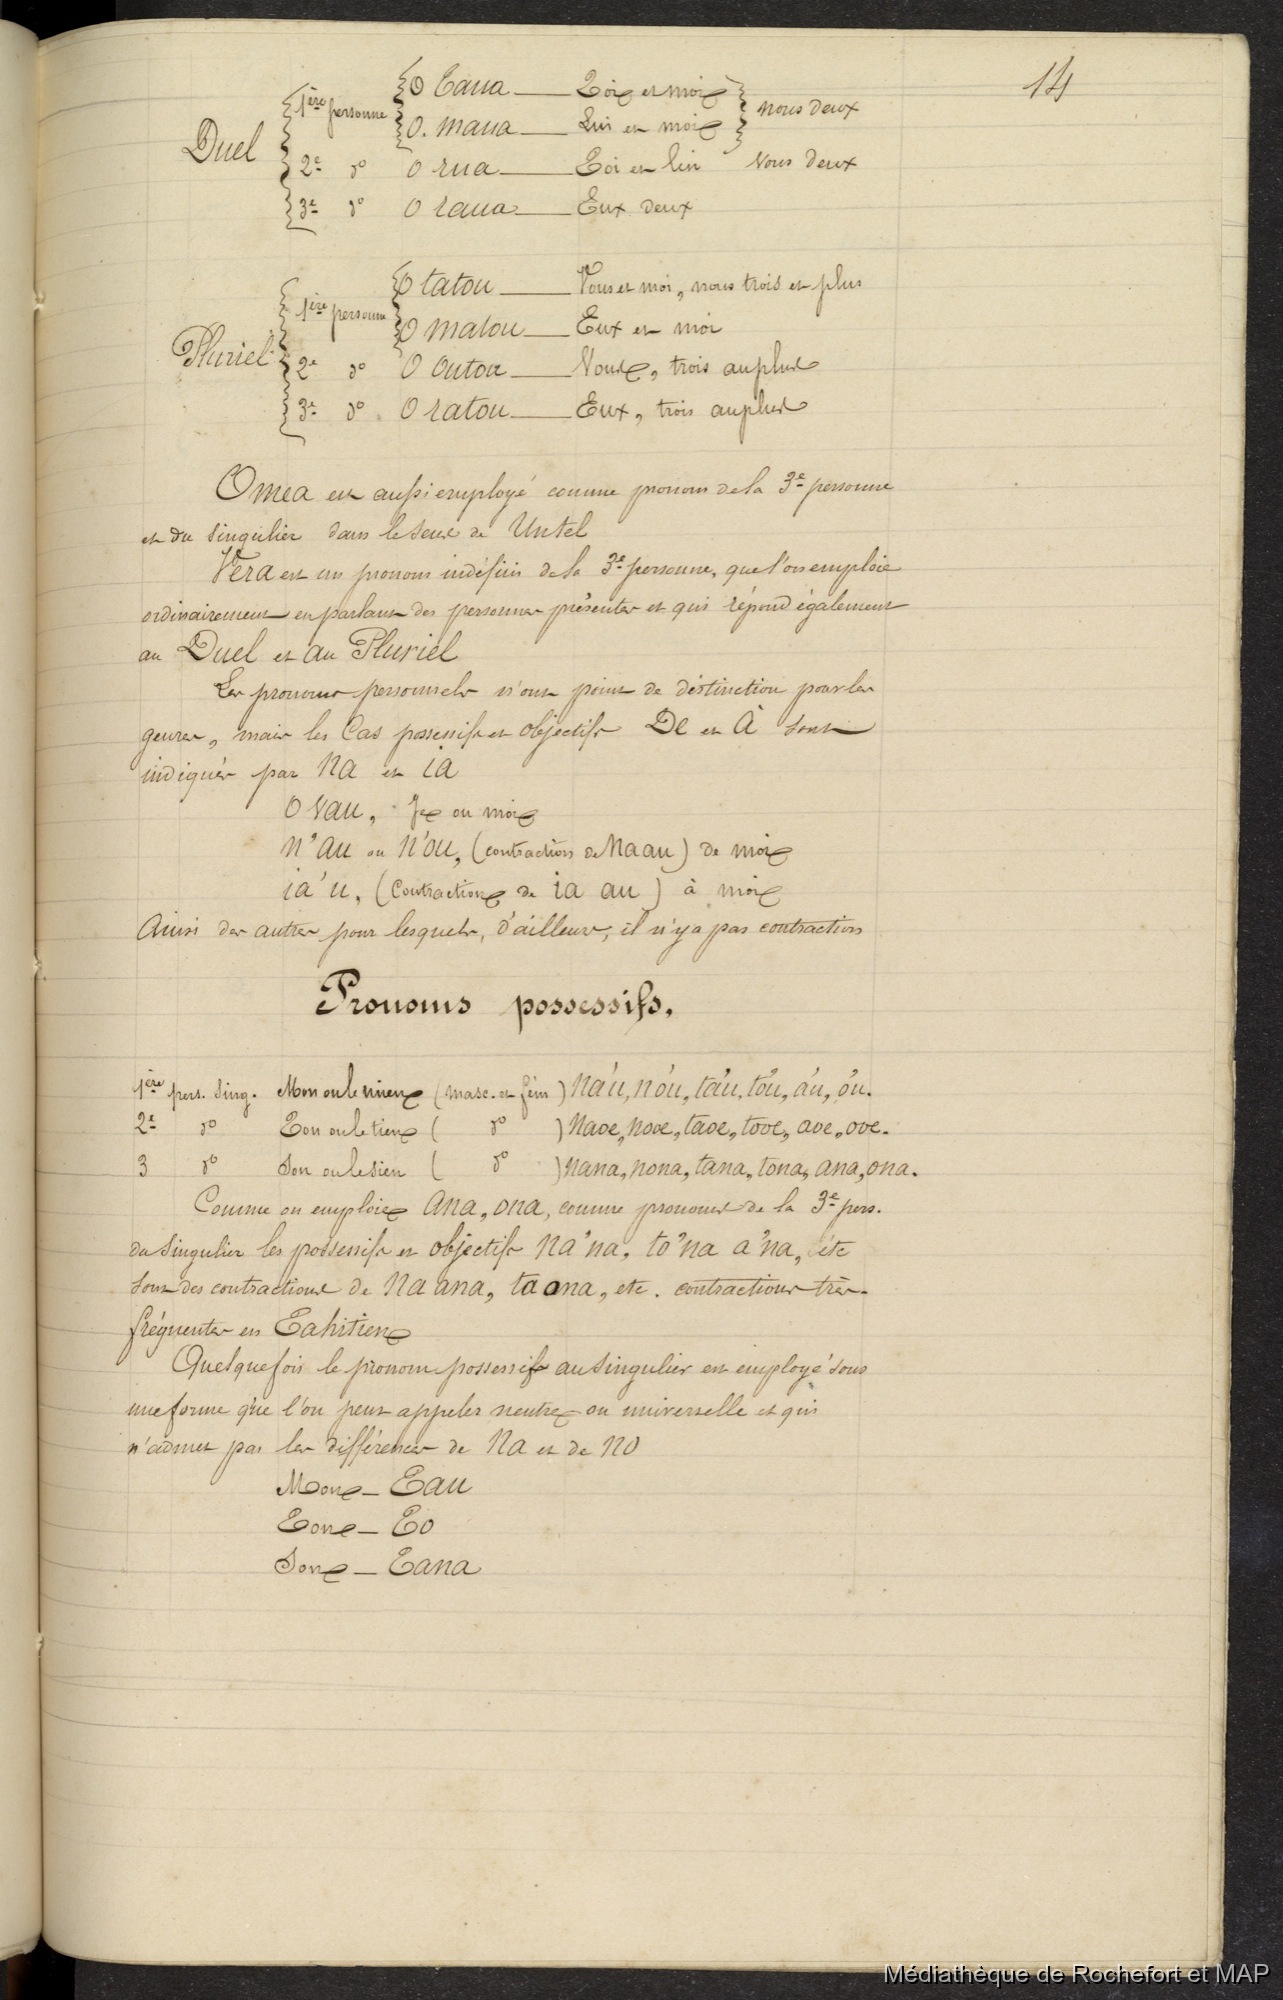 14
Duel
1ère personne
O Taua — Toi et moi
O. maua — Lui et moi
nous deux
2e do O rua — Toi et lui Vous deux
3e do O raua — Eux deux
Pluriel
1ère personne
O tatou — Vous et moi, nous trois et plus
O matou — Eux et moi
2e do O outou — Vous, trois au plus
3e do O ratou — Eux, trois au plus
Omea est aussi employé comme pronom de la 3e personne
et du singulier dans le sens de Untel
Vera est un pronom indéfini de la 3e personne, que l'on emploie
ordinairement en parlant des personnes présentes et qui répond également
au Duel et au Pluriel
Les pronoms personnels n'ont point de distinction pour les
genres, mais les Cas possessifs et objectifs De et À sont
indiqués par Na et ia
O Vau, Je ou moi
n'au ou n'ou, (contraction de Naau) de moi
ia'u, (Contraction de ia au) à moi
Ainsi des autres pour lesquels, d'ailleurs, il n'y a pas contraction
Pronoms possessifs.
1ère pers. Sing. Mon ou le mien (masc. et fém) Na'u, no'u, ta'u, to'u, a'u, o'u.
2e do Ton ou le tien ( do ) Naoe, nooe, taoe, tooe, aoe, ooe.
3 do Son ou le sien ( do ) nana, nona, tana, tona, ana, ona.
Comme on emploie ana, ona, comme pronoms de la 3e pers.
du Singulier les possessifs et objectifs na'na, to'na a'na, etc
sont des contractions de Na ana, ta ana, etc. contractions très-
fréquentes en Tahitien
Quelquefois le pronom possessif au Singulier est employé sous
une forme que l'on peut appeler neutre ou universelle et qui
n'admet pas les différences de Na et de no
Mon — Tau
Ton — To
Son — Tana
Médiathèque de Rochefort et MAP